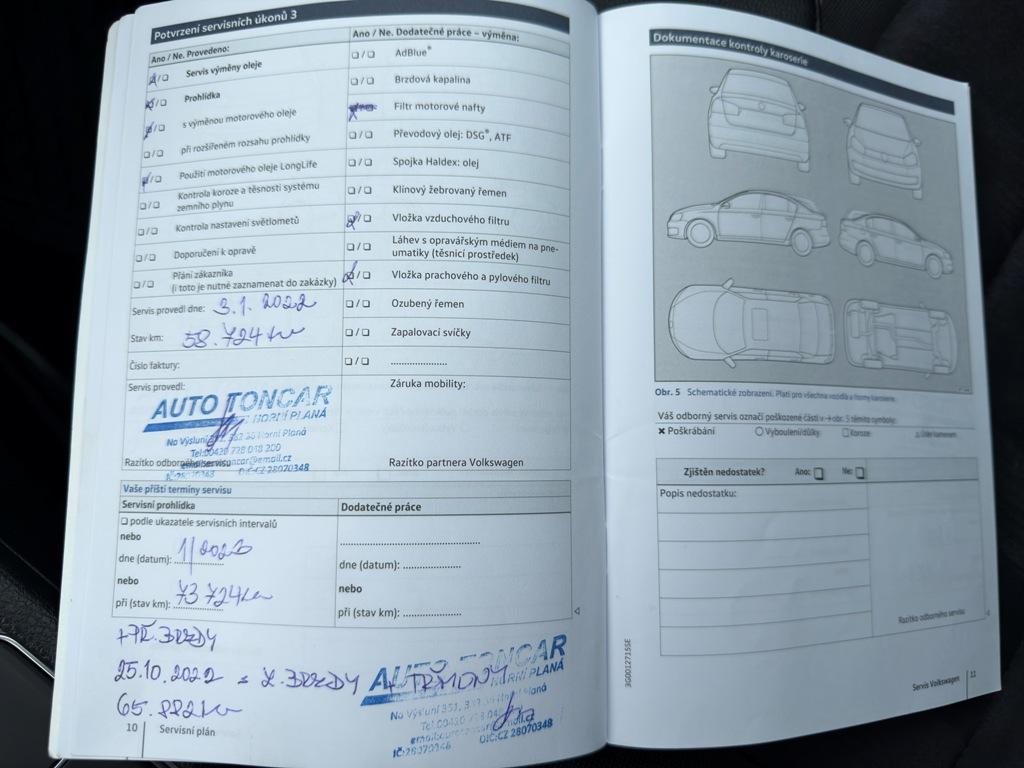 Potvrzení servisních úkonů 3
Ano / Ne. Provedeno:
Servis výměny oleje
Prohlídka
s výměnou motorového oleje
při rozšířeném rozsahu prohlídky
Použití motorového oleje LongLife
Kontrola koroze a těsnosti systému
zemního plynu
Kontrola nastavení světlometů
Doporučení k opravě
Přání zákazníka
(i toto je nutné zaznamenat do zakázky)
Servis provedl dne: 3.1.2022
Stav km: 58.724km
Číslo faktury:
Servis provedl:
AUTO TONCAR
HORNÍ PLANÁ
Na Výsluní 351, 382 26 Horní Planá
Razítko odborného servisu
IČ:28070348 DIČ:CZ 28070348
Ano / Ne. Dodatečné práce – výměna:
AdBlue®
Brzdová kapalina
Filtr motorové nafty
Převodový olej: DSG®, ATF
Spojka Haldex: olej
Klínový žebrovaný řemen
Vložka vzduchového filtru
Láhev s opravářským médiem na pne-
umatiky (těsnicí prostředek)
Vložka prachového a pylového filtru
Ozubený řemen
Zapalovací svíčky
....................
Záruka mobility:
Razítko partnera Volkswagen
Vaše příští termíny servisu
Servisní prohlídka
podle ukazatele servisních intervalů
nebo
dne (datum): 1/2023
nebo
při (stav km): 73 724km
Dodatečné práce
dne (datum): ....................
nebo
při (stav km): ....................
+PŘ.BRZDY
25.10.2022 = Z.BRZDY + TŘMONY
65.882km
AUTO TONCAR
HORNÍ PLANÁ
Na Výsluní 351, Horní Planá
IČ:28070348 DIČ:CZ 28070348
10 Servisní plán
Dokumentace kontroly karoserie
Obr. 5 Schematické zobrazení. Platí pro všechna vozidla a formy karoserie.
Váš odborný servis označí poškozené části v → obr. 5 těmito symboly:
✖ Poškrábání
Vyboulení/důlky
Koroze
Úder kamenem
Zjištěn nedostatek? Ano: Ne:
Popis nedostatku:
Razítko odborného servisu
3G0012715SE
Servis Volkswagen 11